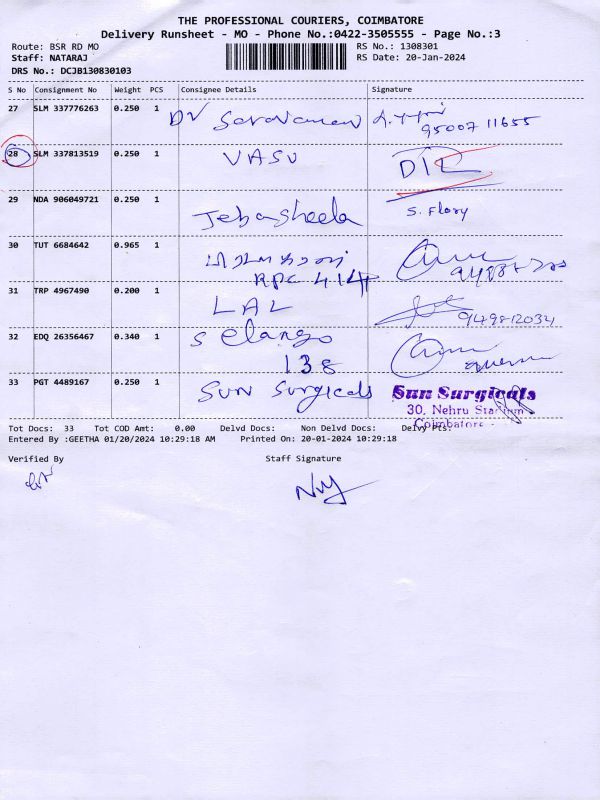 THE PROFESSIONAL COURIERS, COIMBATORE
Delivery Runsheet - MO - Phone No.:0422-3505555 - Page No.:3
Route: BSR RD MO RS No.: 1308301
Staff: NATARAJ RS Date: 20-Jan-2024
DRS No.: DCJB130830103
S No Consignment No Weight PCS Consignee Details Signature
27 SLM 337776263 0.250 1 DV Saravanan 95007 11655
28 SLM 337813519 0.250 1 VASU DIL
29 NDA 906049721 0.250 1 Jebasheela S. Flory
30 TUT 6684642 0.965 1
RPC 414
31 TRP 4967490 0.200 1 LAL 949812034
32 EDQ 26356467 0.340 1 S elango
138
33 PGT 4489167 0.250 1 Sun Surgicals Sun Surgicals
30, Nehru Stadium
Coimbatore -
Tot Docs: 33 Tot COD Amt: 0.00 Delvd Docs: Non Delvd Docs: Delvy Pts:
Entered By :GEETHA 01/20/2024 10:29:18 AM Printed On: 20-01-2024 10:29:18
Verified By Staff Signature